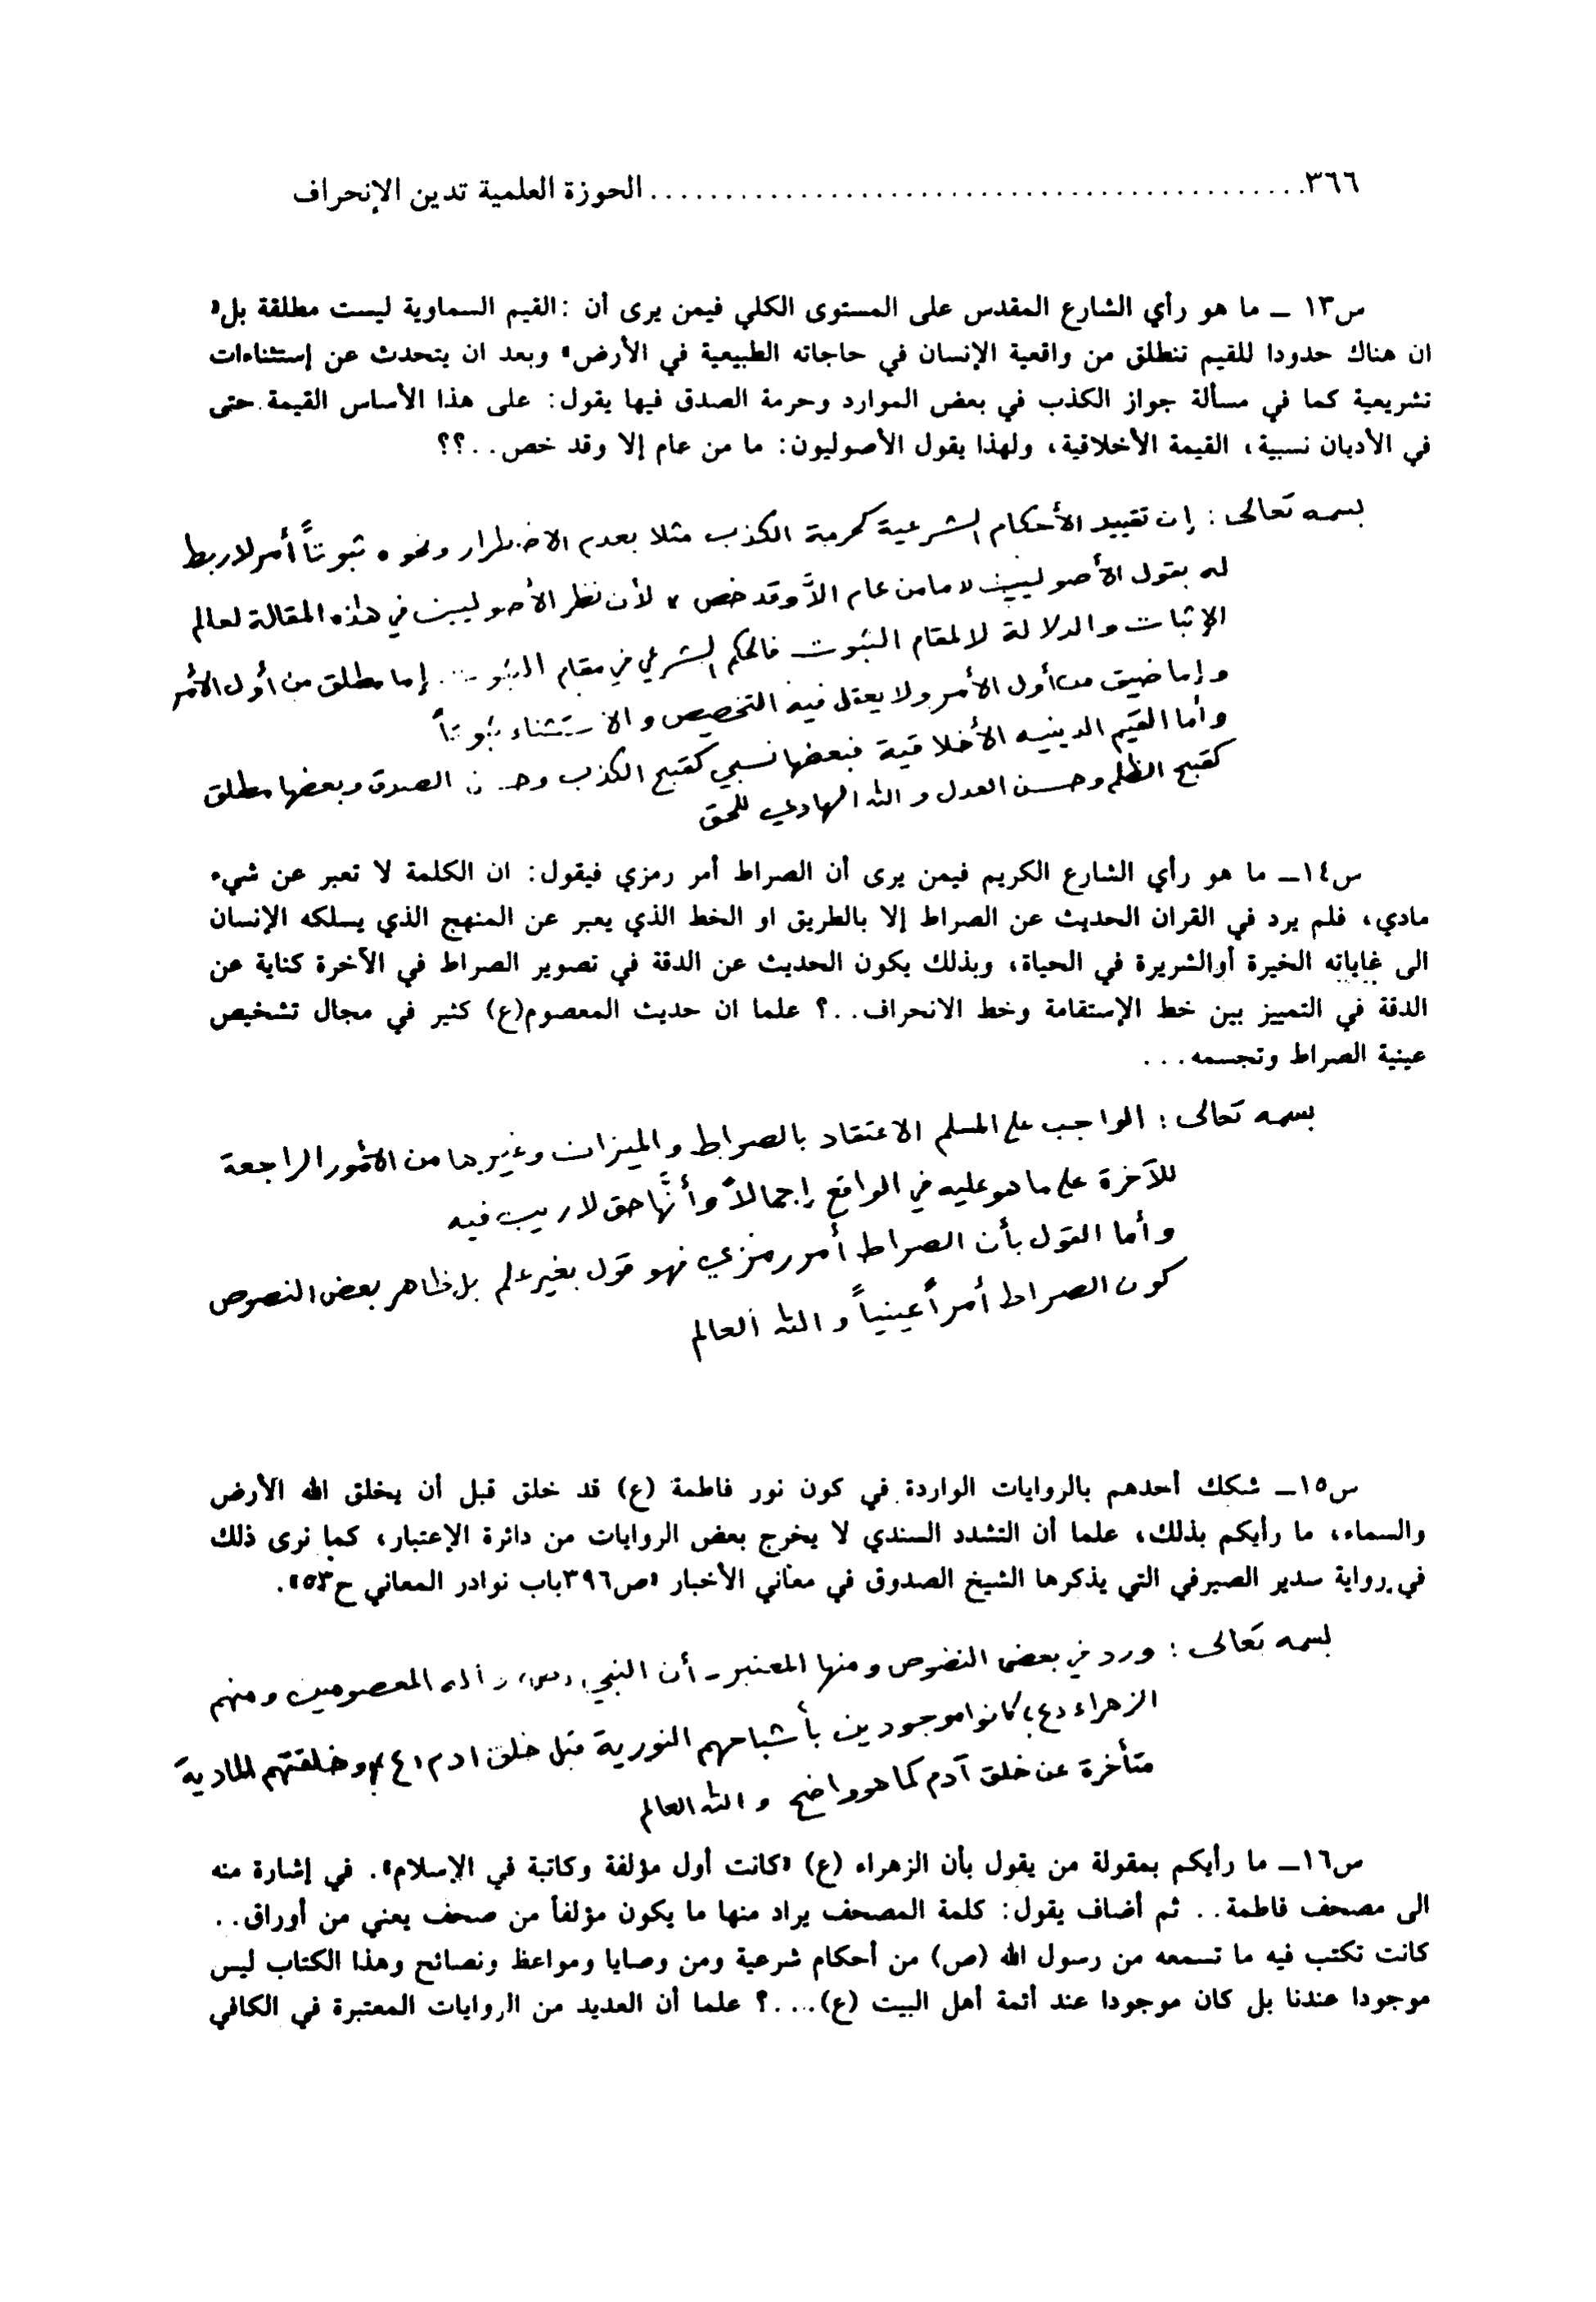 ٣٦٦............................................الحوزة العلمية تدين الإنحراف
س١٣ ـ ما هو رأي الشارع المقدس على المستوى الكلي فيمن يرى أن :القيم السماوية ليست مطلقة بل«
ان هناك حدودا للقيم تنطلق من واقعية الإنسان في حاجاته الطبيعية في الأرض» وبعد ان يتحدث عن إستثناءات
تشريعية كما في مسألة جواز الكذب في بعض الموارد وحرمة الصدق فيها يقول: على هذا الأساس القيمة حتى
في الأديان نسبية، القيمة الأخلاقية، ولهذا يقول الأصوليون: ما من عام إلا وقد خص..؟؟
بسمه تعالى : إن تقييد الأحكام الشرعية كحرمة الكذب مثلا بعدم الاضطرار ونحوه ثبوتاً أمر لا ربط
له بقول الأصوليين « ما من عام الاّ وقد خص » لأن نظر الأصوليين في هذه المقالة لعالم
الإثبات والدلالة لا لمقام الثبوت فالحكم الشرعي في مقام الثبوت إما مطلق من أول الأمر
وإما ضيق من أول الأمر ولا يعقل فيه التخصيص والاستثناء ثبوتاً
وأما القيم الدينيه الأخلاقية فبعضها نسبي كقبح الكذب وحسن الصدق وبعضها مطلق
كقبح الظلم وحسن العدل والله الهادي للحق
س١٤ـ ما هو رأي الشارع الكريم فيمن يرى أن الصراط أمر رمزي فيقول: ان الكلمة لا تعبر عن شيء
مادي، فلم يرد في القران الحديث عن الصراط إلا بالطريق او الخط الذي يعبر عن المنهج الذي يسلكه الإنسان
الى غاياته الخيرة أوالشريرة في الحياة، وبذلك يكون الحديث عن الدقة في تصوير الصراط في الآخرة كناية عن
الدقة في التمييز بين خط الإستقامة وخط الانحراف..؟ علما ان حديث المعصوم(ع) كثير في مجال تشخيص
عينية الصراط وتجسمه...
بسمه تعالى : الواجب على المسلم الاعتقاد بالصراط والميزان وغيرها من الأمور الراجعة
للآخرة على ما هو عليه في الواقع إجمالاً وأنّها حق لا ريب فيه
وأما القول بأن الصراط أمر رمزي فهو قول بغير علم بل ظاهر بعض النصوص
كون الصراط أمراً عينياً والله العالم
س١٥ـ شكك أحدهم بالروايات الواردة في كون نور فاطمة (ع) قد خلق قبل أن يخلق الله الأرض
والسماء، ما رأيكم بذلك، علما أن التشدد السندي لا يخرج بعض الروايات من دائرة الإعتبار، كما نرى ذلك
في رواية سدير الصيرفي التي يذكرها الشيخ الصدوق في معاني الأخبار «ص٣٩٦باب نوادر المعاني ح٥٣».
بسمه تعالى : ورد في بعض النصوص ومنها المعتبر ـ أن النبي (ص) وآله المعصومين ومنهم
الزهراء (ع) كانوا موجودين بأشباحهم النورية قبل خلق ادم (ع) وخلقتهم المادية
متأخرة عن خلق آدم كما هو واضح والله العالم
س١٦ـ ما رأيكم بمقولة من يقول بأن الزهراء (ع) «كانت أول مؤلفة وكاتبة في الإسلام». في إشارة منه
الى مصحف فاطمة.. ثم أضاف يقول: كلمة المصحف يراد منها ما يكون مؤلفاً من صحف يعني من أوراق..
كانت تكتب فيه ما تسمعه من رسول الله (ص) من أحكام شرعية ومن وصايا ومواعظ ونصائح وهذا الكتاب ليس
موجودا عندنا بل كان موجودا عند أئمة أهل البيت (ع)....؟ علما أن العديد من الروايات المعتبرة في الكافي